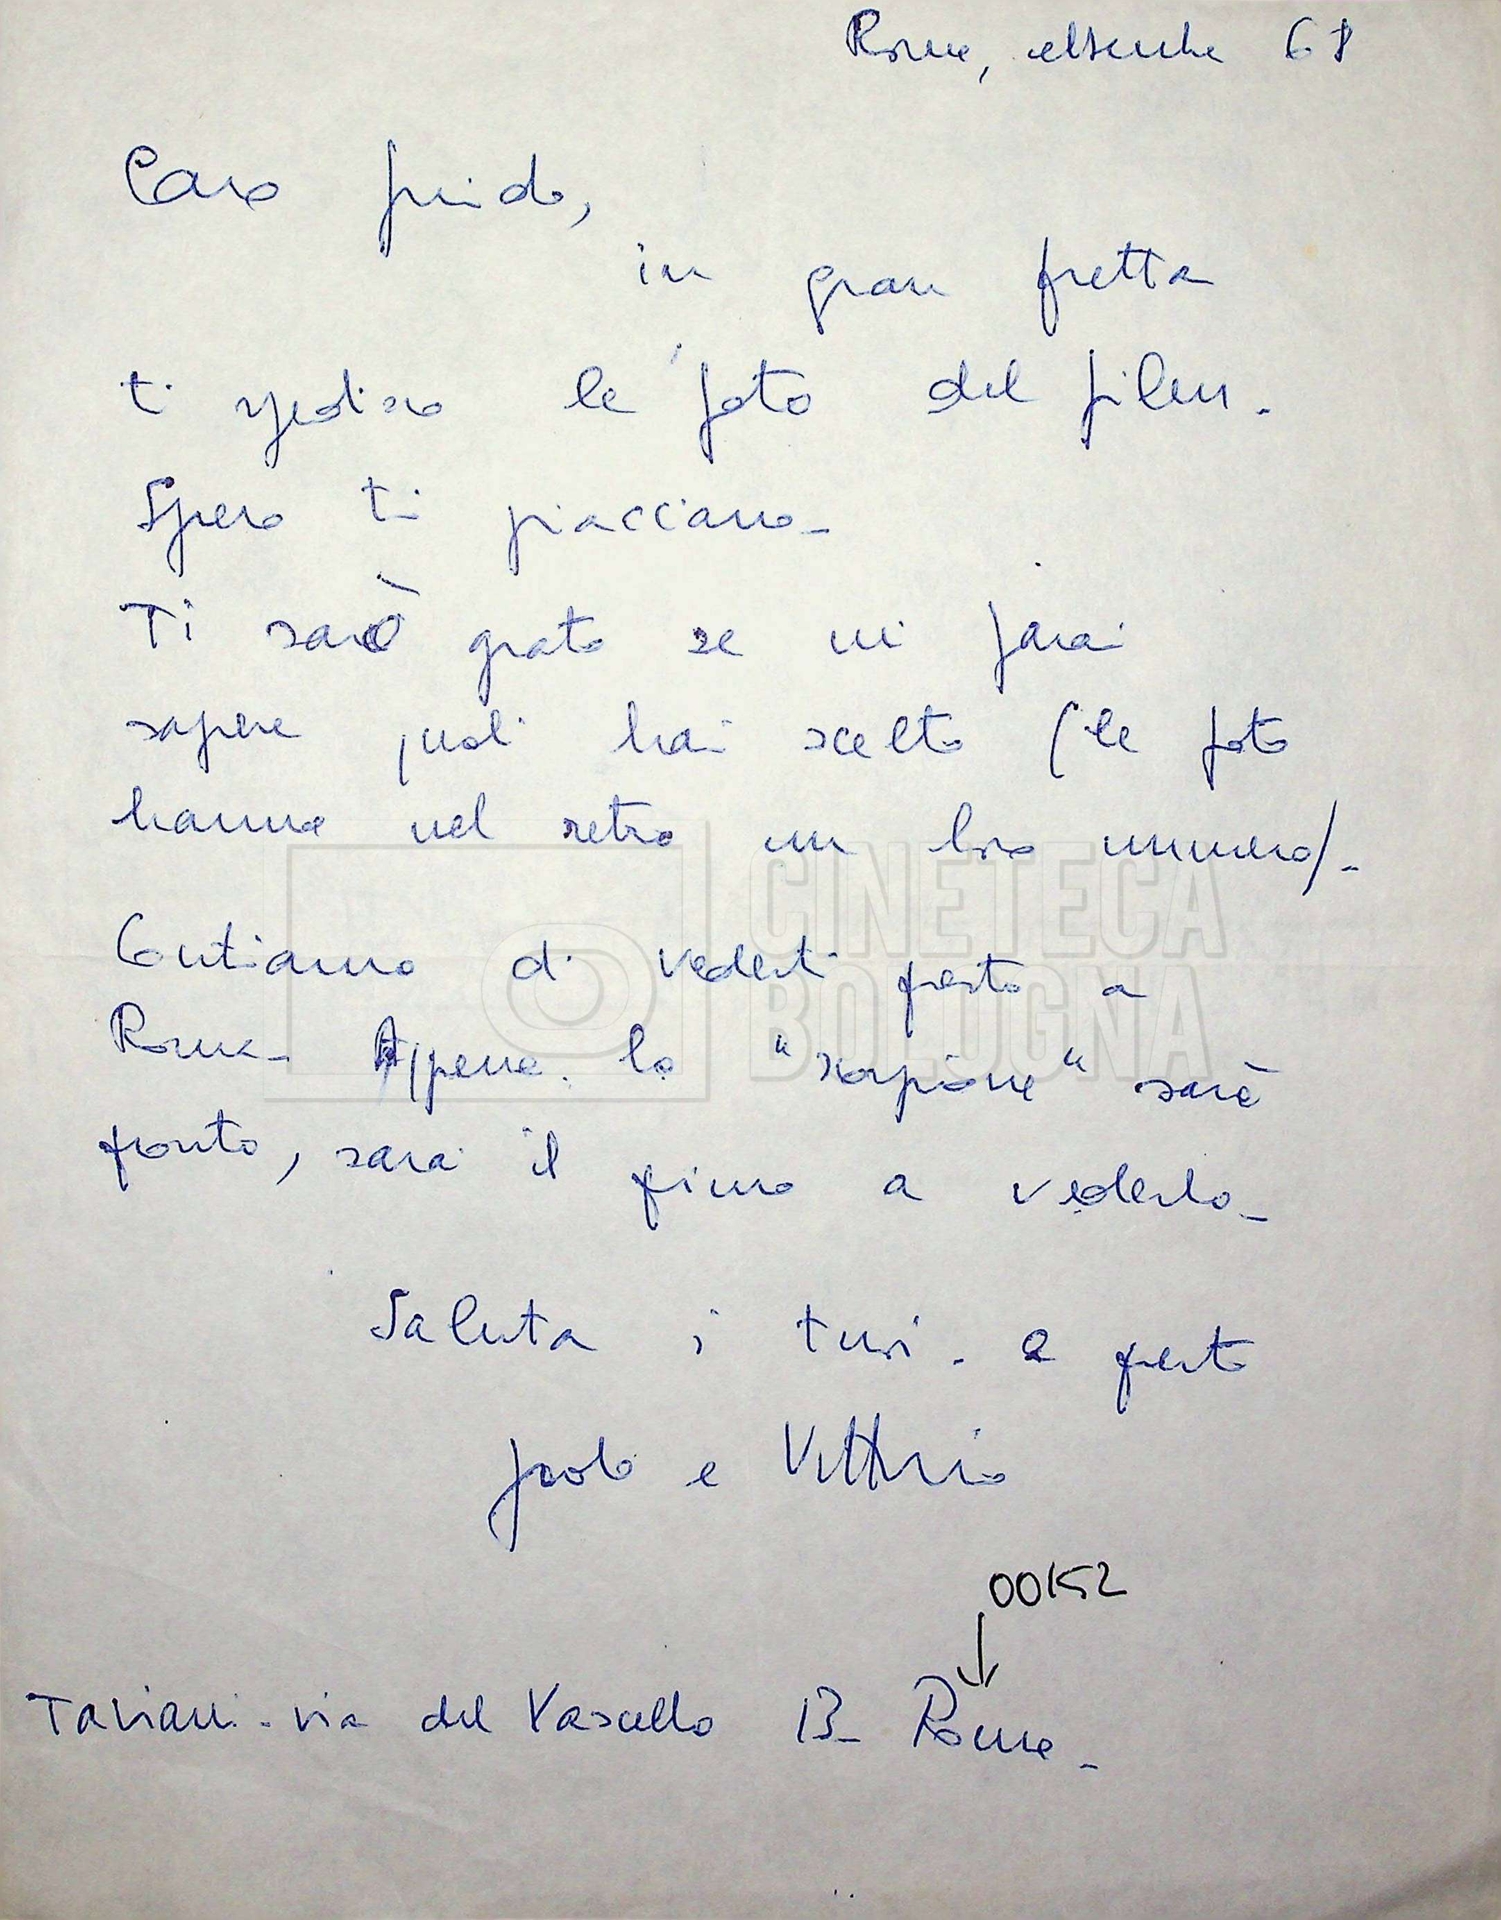 Roma, dicembre 68
Caro Guido,
in gran fretta
ti spedisco le foto del film.
Spero ti piacciano_
Ti sarò grato se mi farai
sapere quali hai scelto (le foto
hanno nel retro un loro numero/.
CINETECA
BOLOGNA
Contiamo di vederti presto a
Roma_ Appena lo "scorpione" sarà
pronto, sarai il primo a vederlo_
Saluta i tuoi. a presto
Paolo e Vittorio
00152
Taviani - via del Vascello 13_ Roma_